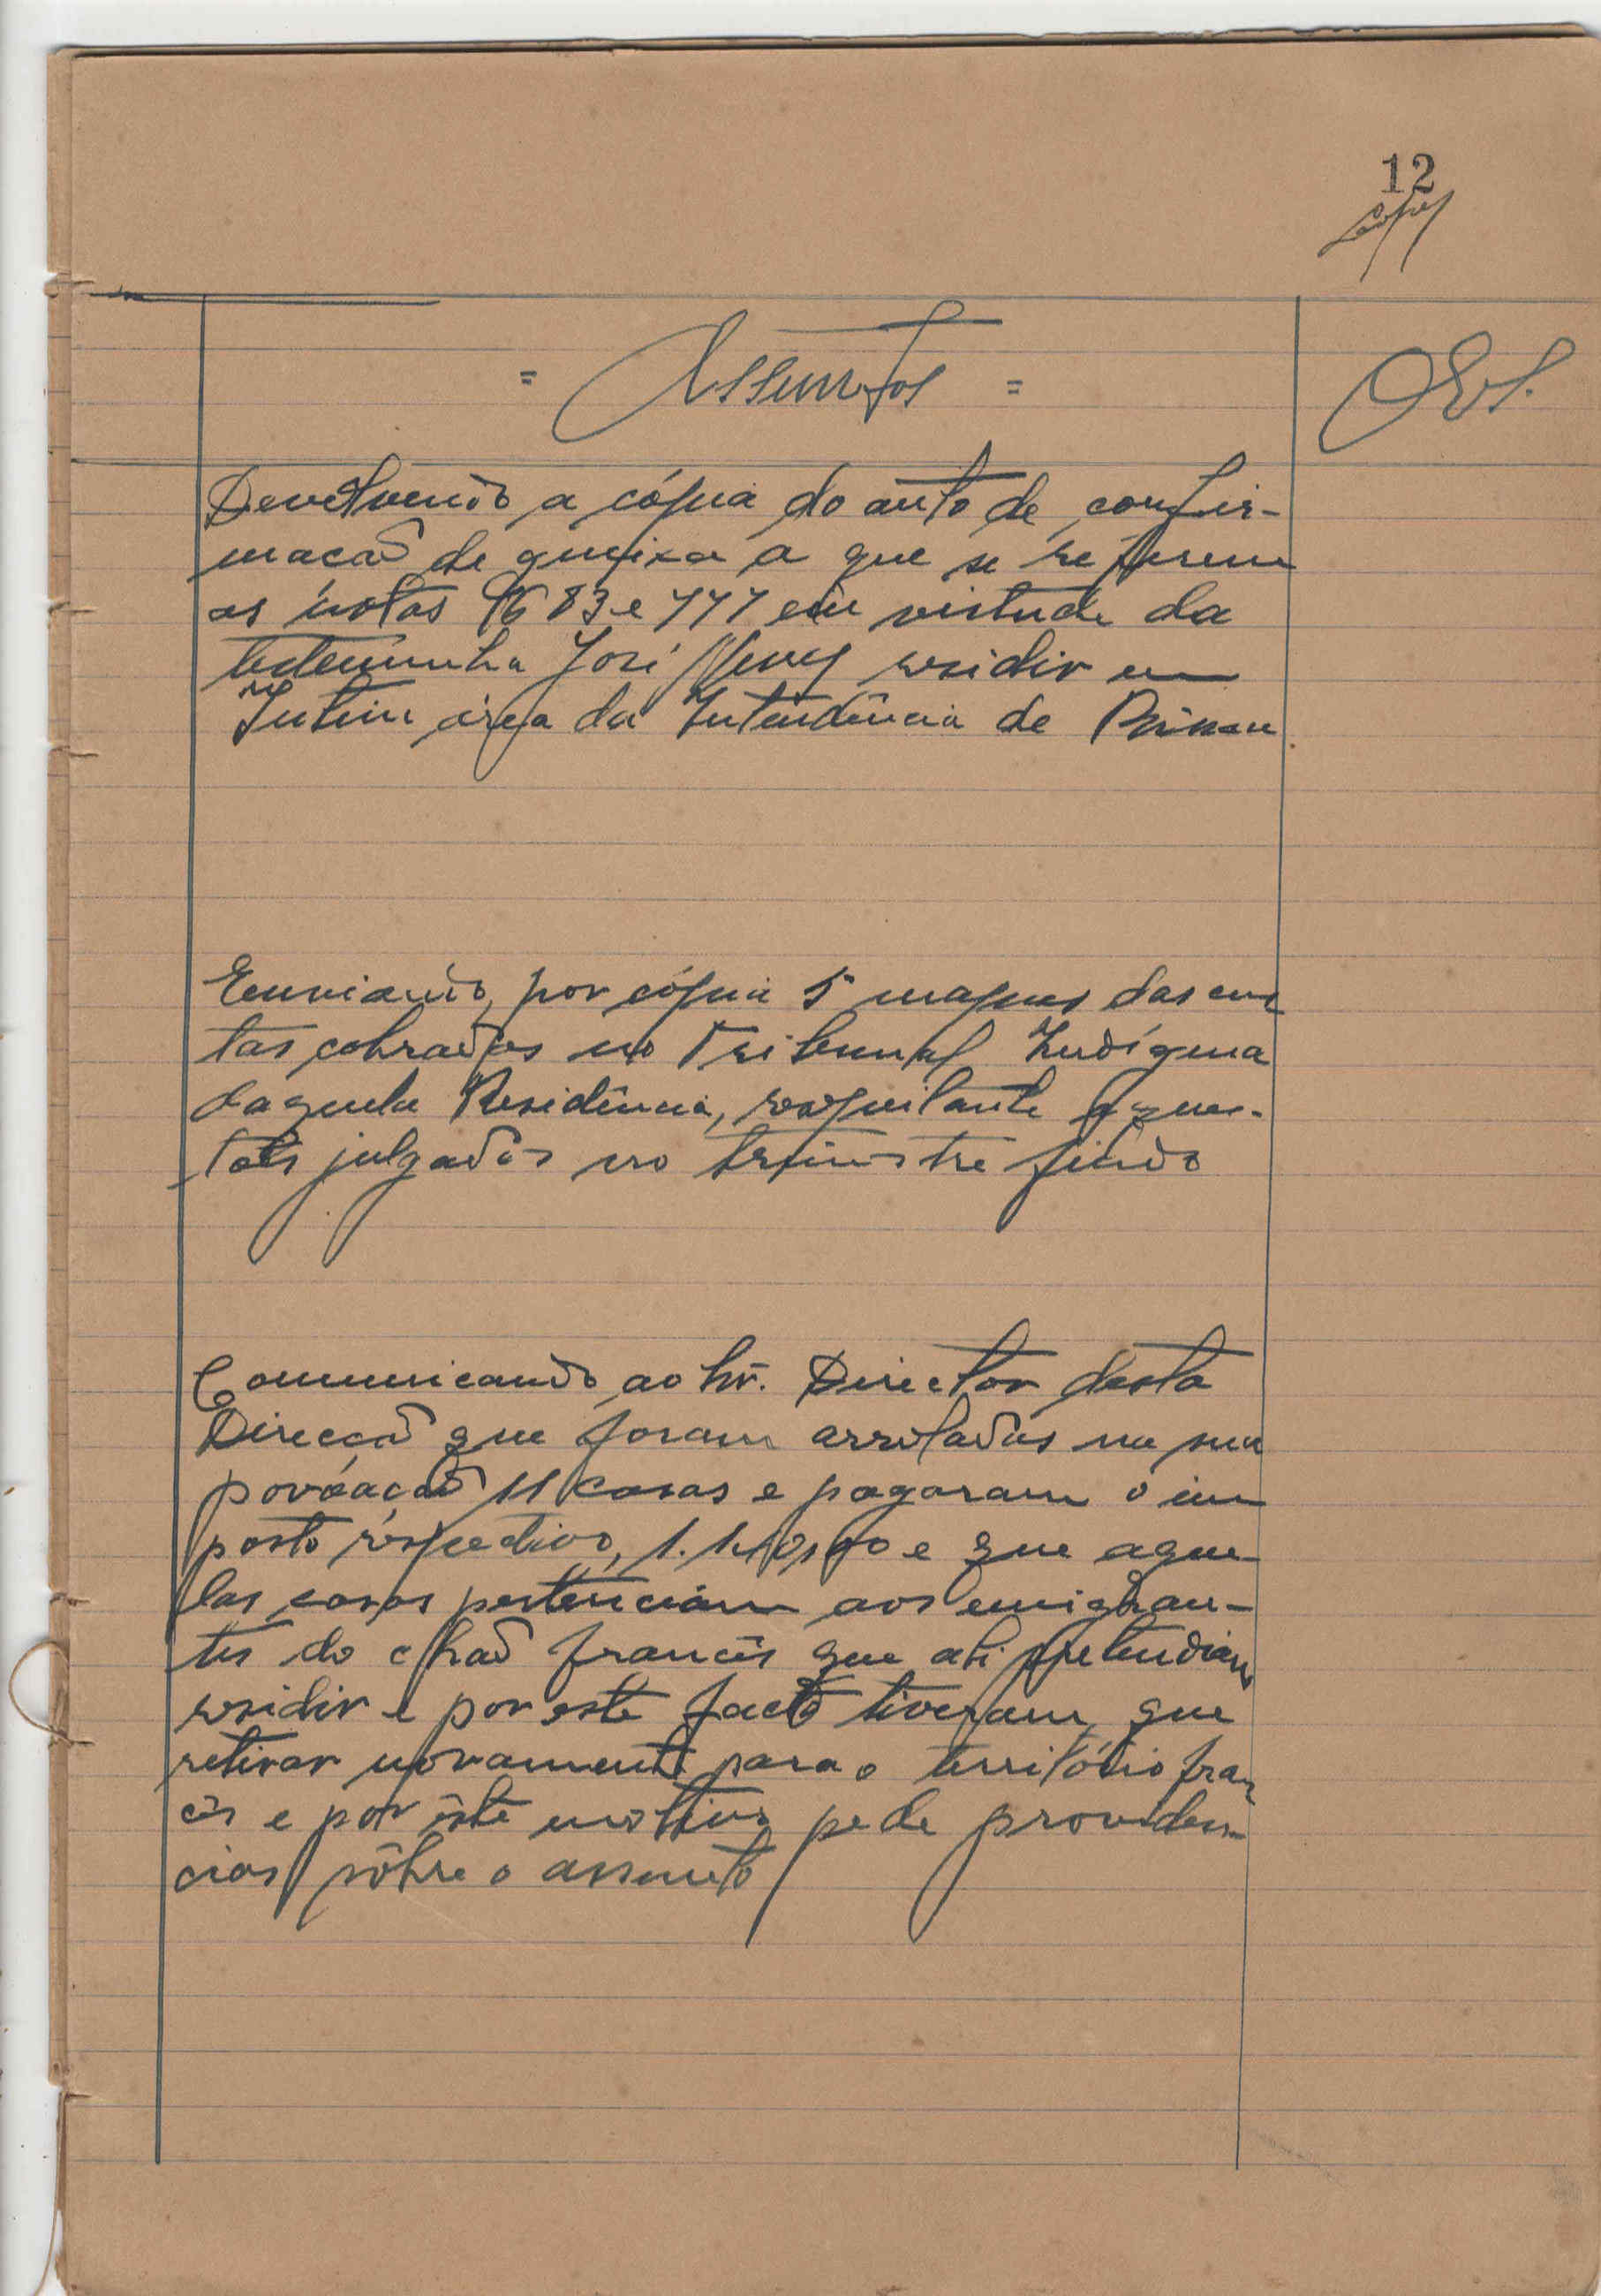 12
= Assuntos =
Obs.
Devolvendo a cópia do auto de confir-
macão de queixa a que se referem
as notas 683 e 777 em virtude da
testemunha José residir em
Intim área da Intendência de Bissau
Enviando, por cópia 5 mapas das cus
tas cobradas no Tribunal Indígena
daquela Residência, respeitante a ques-
tões julgadas no trimestre findo
Comunicando ao Sr. Director desta
Direccão que foram arroladas na sua
povoacão 11 casas e pagaram o im
posto respectivo, e que aque
las casas pertenciam aos emigran-
tes do chão francês que ali pretendiam
residir e por este facto tiveram que
retirar novamente para o território fran
cês e por êste motivo pede providen-
cias sôbre o assunto